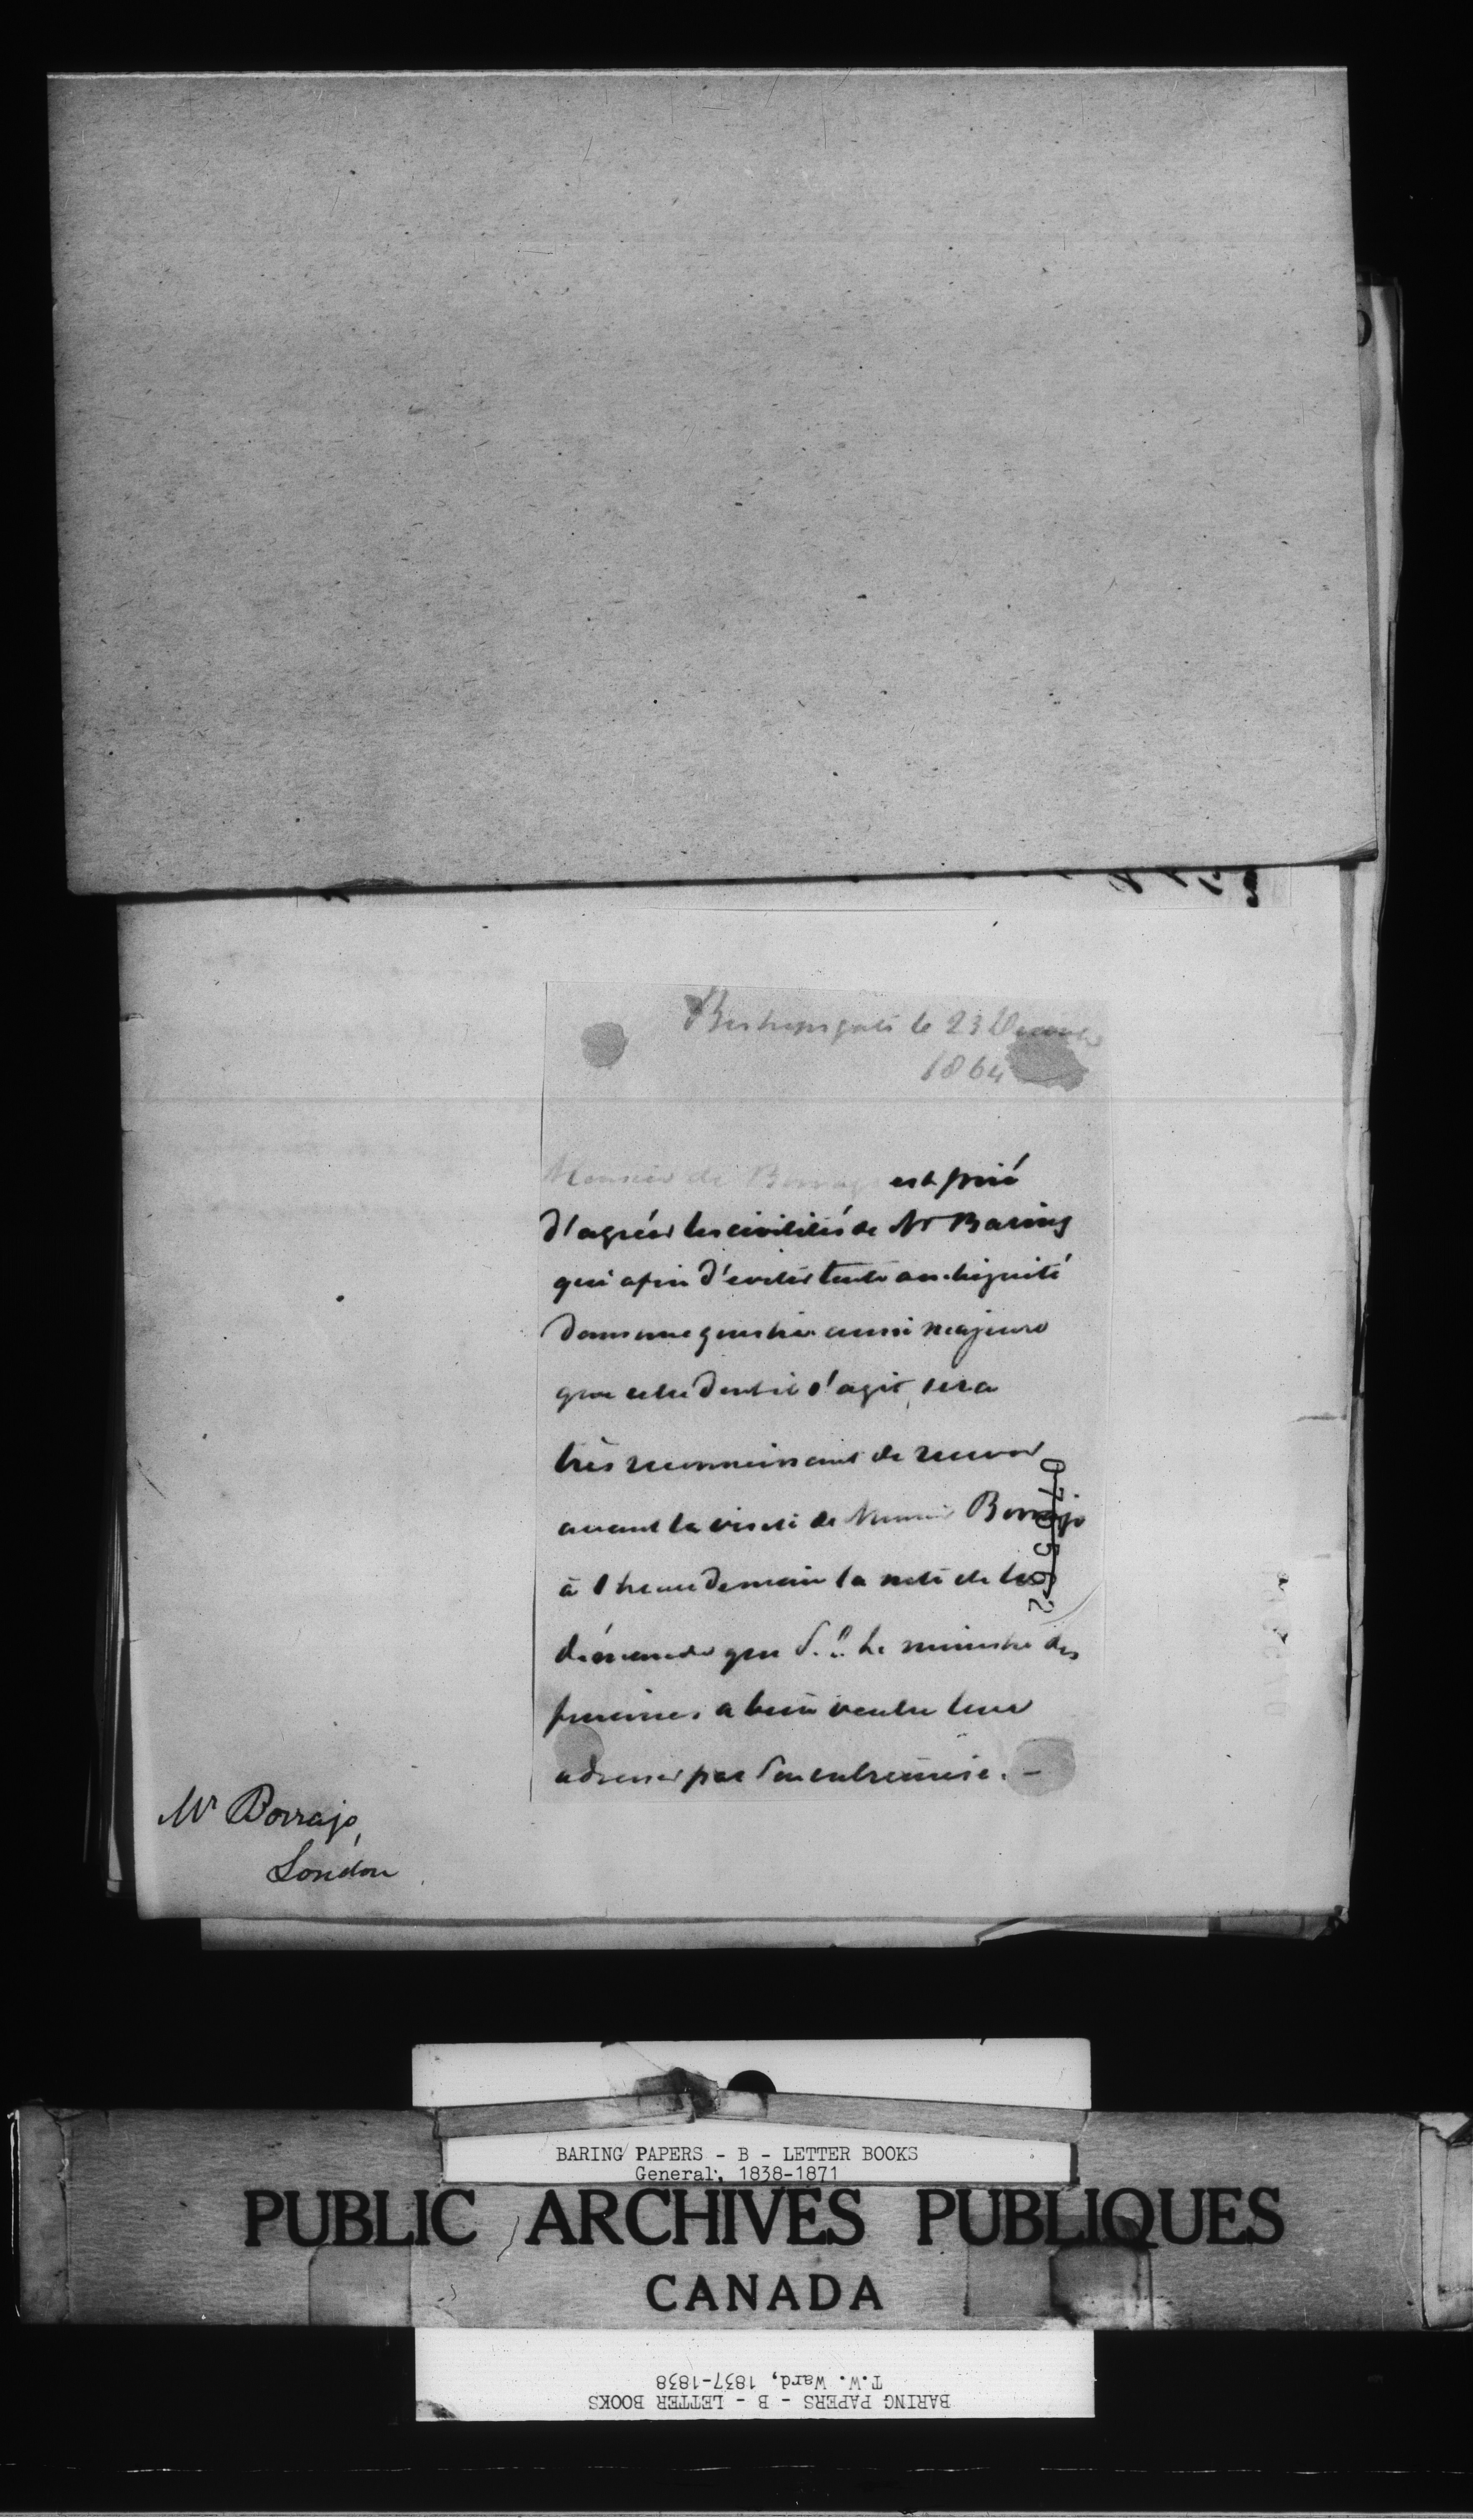 Bishopsgate le 23 Decembre
1864
Monsieur de Borrajo est prié
d'agréer les civilités de Mr Baring
qui afin d'eviter toute ambiguité
dans une question aussi majeure
que celle dont il s'agit, sera
très reconnaissant de recevoir
avant la visite de Monsieur Borrajo
à 1 heure demain la note de la
demande que S. E. le ministre des
finances a bien voulu leur
adresser par son entremise. -
070562
Mr Borrajo,
London
BARING PAPERS - B - LETTER BOOKS
General, 1838-1871
PUBLIC ARCHIVES PUBLIQUES
CANADA
T.W. Ward, 1837-1838
BARING PAPERS - B - LETTER BOOKS